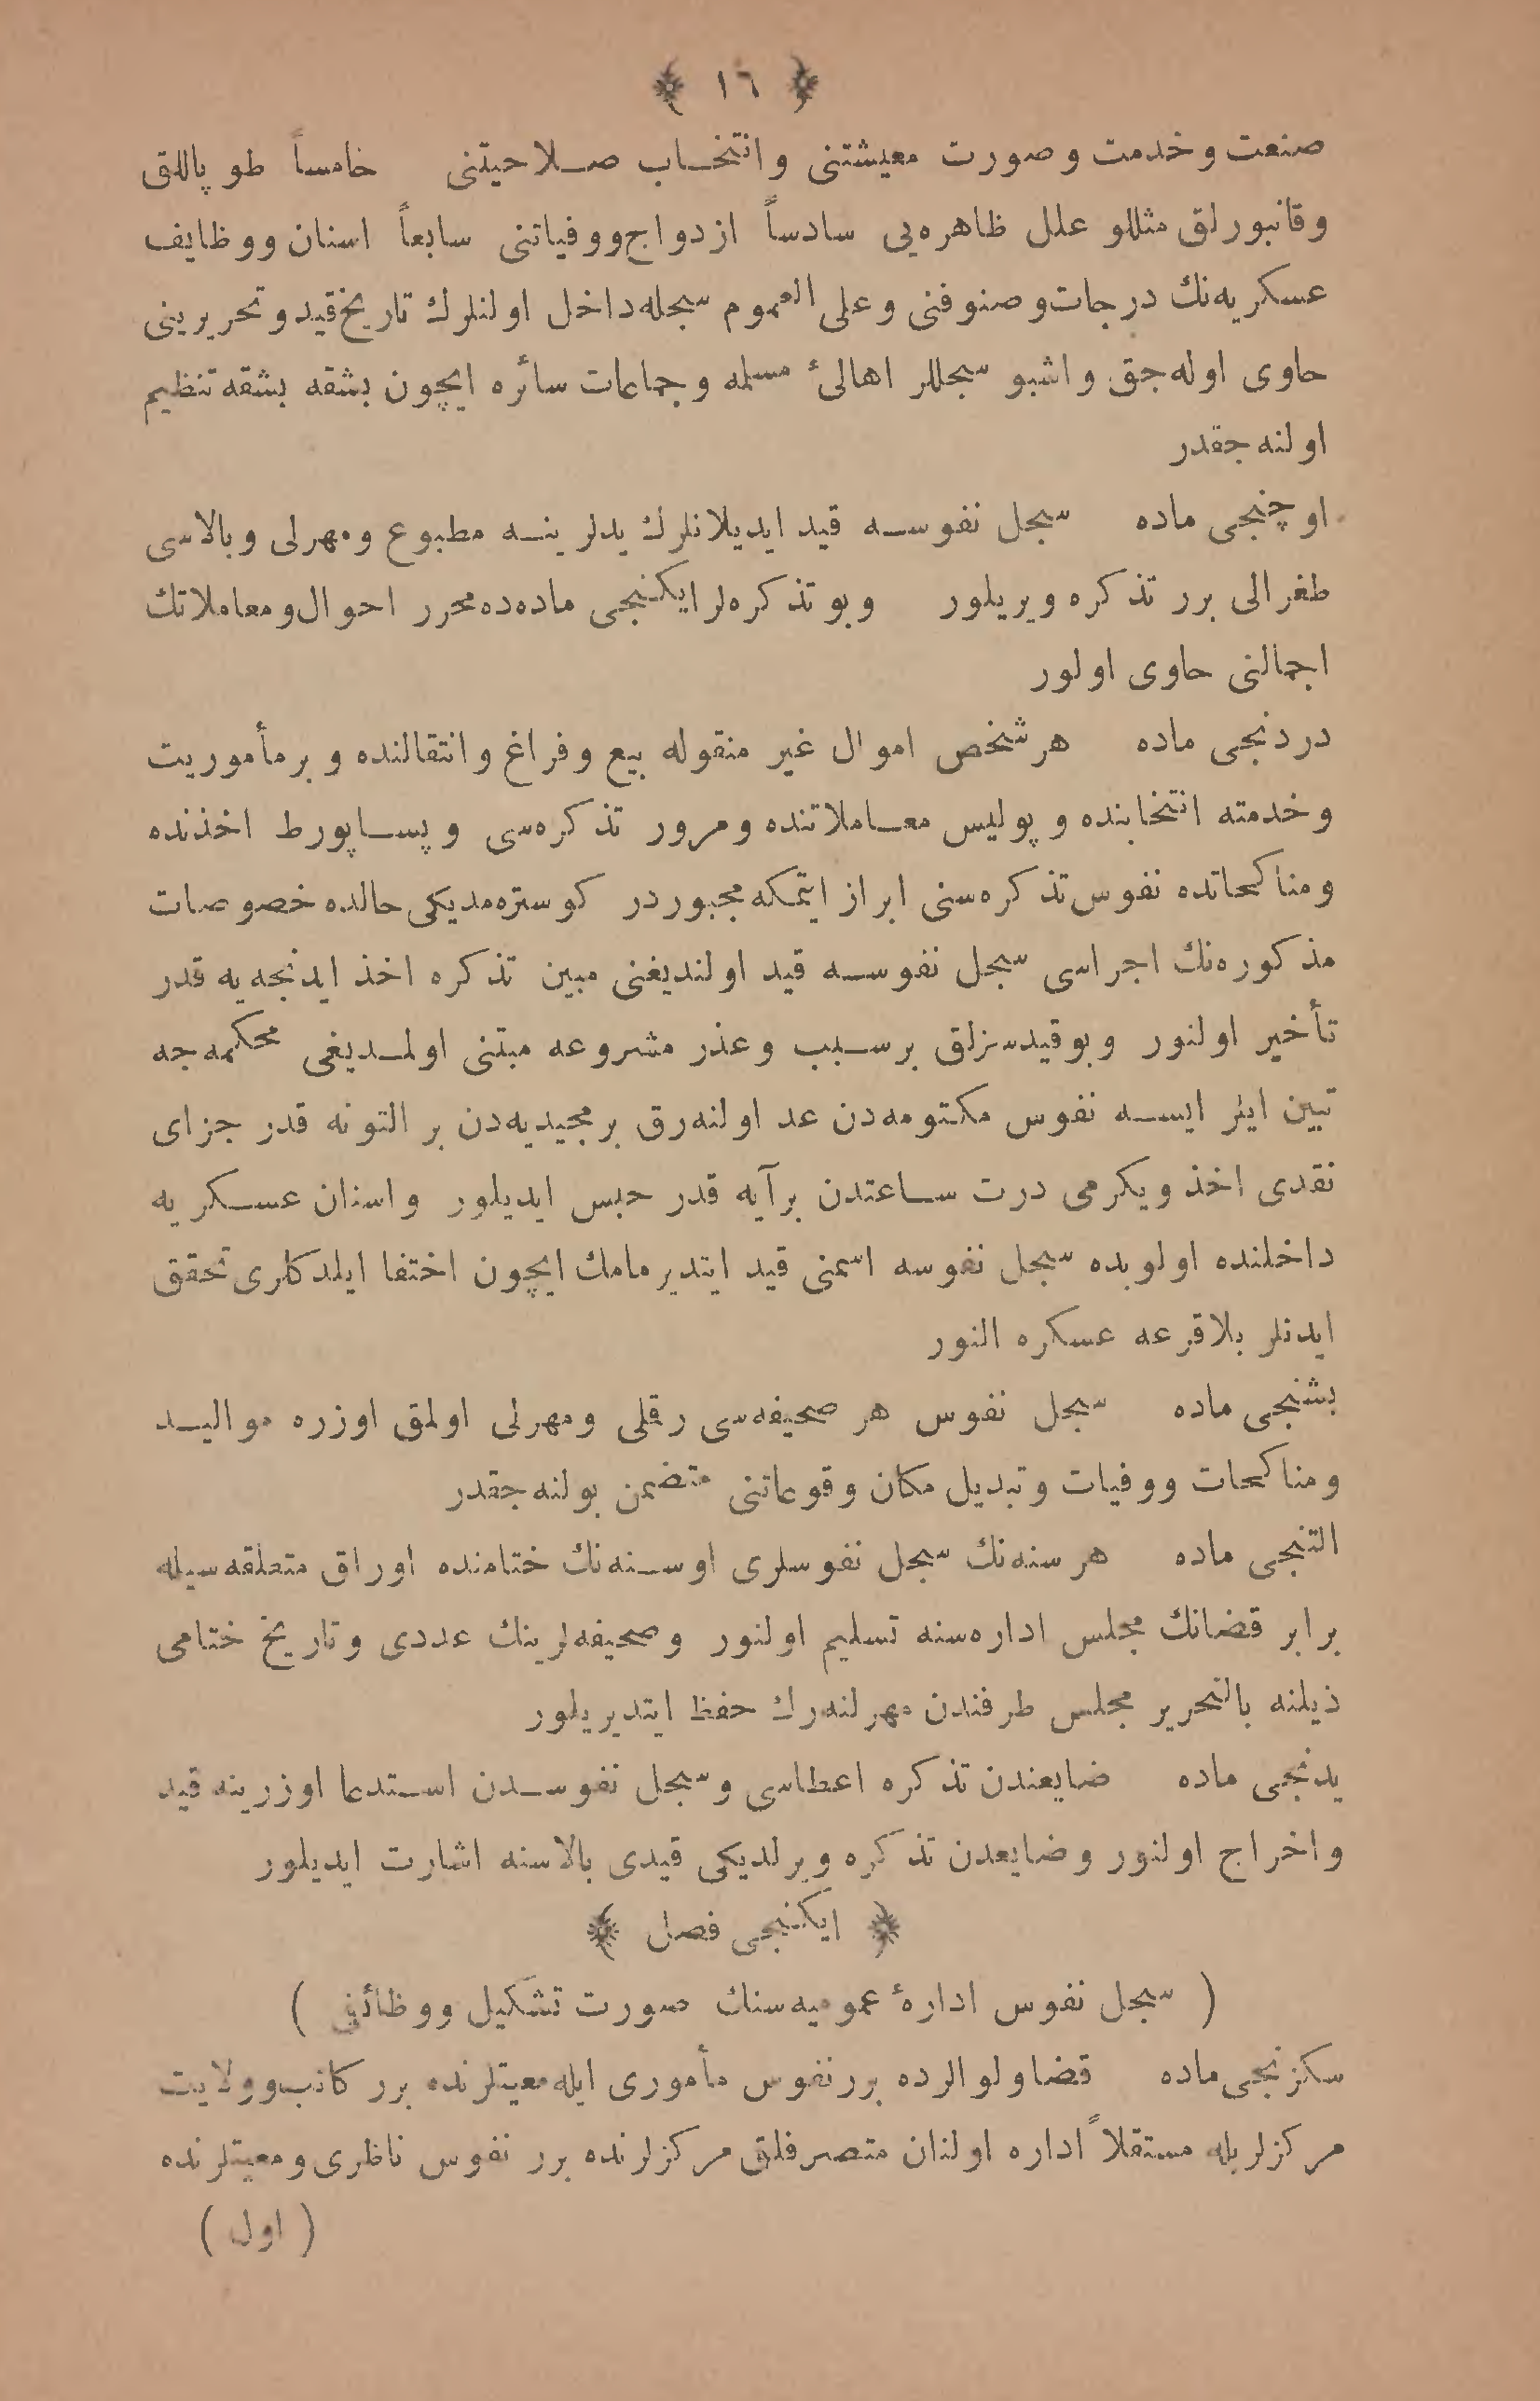 ﴿ ١٦ ﴾
صنعت و خدمت و صورت معیشتنی و انتخاب صلاحیتنی خامساً طوپاللق
و قانبورلق مثللو علل ظاهره‌یی سادساً ازدواج و وفیاتنی سابعاً اسنان و وظایف
عسکریه‌نك درجات و صنوفنی و علی العموم سجله داخل اولنلرك تاریخ قید و تحریرینی
حاوی اوله‌جق و اشبو سجللر اهالیٔ مسلمه و جماعات سائره ایچون بشقه بشقه تنظیم
اولنه‌جقدر
اوچنجی ماده سجل نفوسه قید ایدیلانلرك یدلرینه مطبوع و مهرلی و بالاسی
طغرالی برر تذکره ویریلور و بو تذکره‌لر ایکنجی ماده‌ده محرر احوال و معاملاتك
اجمالنی حاوی اولور
دردنجی ماده هر شخص اموال غیر منقوله بیع و فراغ و انتقالنده و بر مأموریت
و خدمته انتخابنده و پولیس معاملاتنده و مرور تذکره‌سی و پساپورط اخذنده
و مناکحاتده نفوس تذکره‌سنی ابراز ایتمکه مجبوردر کوستره‌مدیکی حالده خصوصات
مذکوره‌نك اجراسی سجل نفوسه قید اولندیغنی مبین تذکره اخذ ایدنجه‌یه قدر
تأخیر اولنور و بو قیدسزلق بر سبب و عذر مشروعه مبتنی اولمدیغی محکمه‌جه
تبین ایلر ایسه نفوس مکتومه‌دن عد اولنه‌رق بر مجیدیه‌دن بر التونه قدر جزای
نقدی اخذ و یکرمی درت ساعتدن بر آیه قدر حبس ایدیلور و اسنان عسکریه
داخلنده اولوبده سجل نفوسه اسمنی قید ایتدیرمامك ایچون اختفا ایلدکلری تحقق
ایدنلر بلا قرعه عسکره النور
بشنجی ماده سجل نفوس هر صحیفه‌سی رقملی و مهرلی اولمق اوزره موالید
و مناکحات و وفیات و تبدیل مکان وقوعاتنی متضمن بولنه‌جقدر
التنجی ماده هر سنه‌نك سجل نفوسلری او سنه‌نك ختامنده اوراق متعلقه‌سیله
برابر قضانك مجلس اداره‌سنه تسلیم اولنور و صحیفه‌لرینك عددی و تاریخ ختامی
ذیلنه بالتحریر مجلس طرفندن مهرلنه‌رك حفظ ایتدیریلور
یدنجی ماده ضایعندن تذکره اعطاسی و سجل نفوسدن استدعا اوزرینه قید
و اخراج اولنور و ضایعدن تذکره ویرلدیکی قیدی بالاسنه اشارت ایدیلور
﴿ ایکنجی فصل ﴾
( سجل نفوس ادارهٔ عمومیه‌سنك صورت تشکیل و وظائفی )
سکزنجی ماده قضا و لوالرده برر نفوس مأموری ایله معیتلرنده برر کاتب و ولایت
مرکزلریله مستقلاً اداره اولنان متصرفلق مرکزلرنده برر نفوس ناظری و معیتلرنده
( اول )